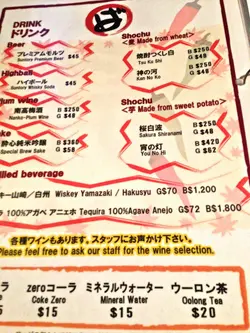 DRINK
ドリンク
Beer
プレミアムモルツ $45
Suntory Premium Beer
Highball
ハイボール $45
Suntory Whisky Soda
Plum Wine
南高梅酒 B $250
Nanko-Plum Wine G $48
Sake
酔心純米吟醸 B $360
Special Brew Sake G $58
Shochu
<麦 Made from wheat>
焼酎つくし白 B $250
Tsu Ku Shi G $48
神の河 B $250
Kan No Ko G $48
Shochu
<芋 Made from sweet potato>
桜白波 B $250
Sakura Shiranami G $48
宵の灯 B $420
You No Hi G $62
illed beverage
キー山崎/白州 Wiskey Yamazaki / Hakusyu G$70 B$1,200
100%アガベ アニェホ Tequira 100%Agave Anejo G$72 B$1,800
各種ワインもあります。スタッフにお声かけ下さい。
Please feel free to ask our staff for the wine selection.
ラ zeroコーラ ミネラルウォーター ウーロン茶
Coke Zero Mineral Water Oolong Tea
$15 $15 $20